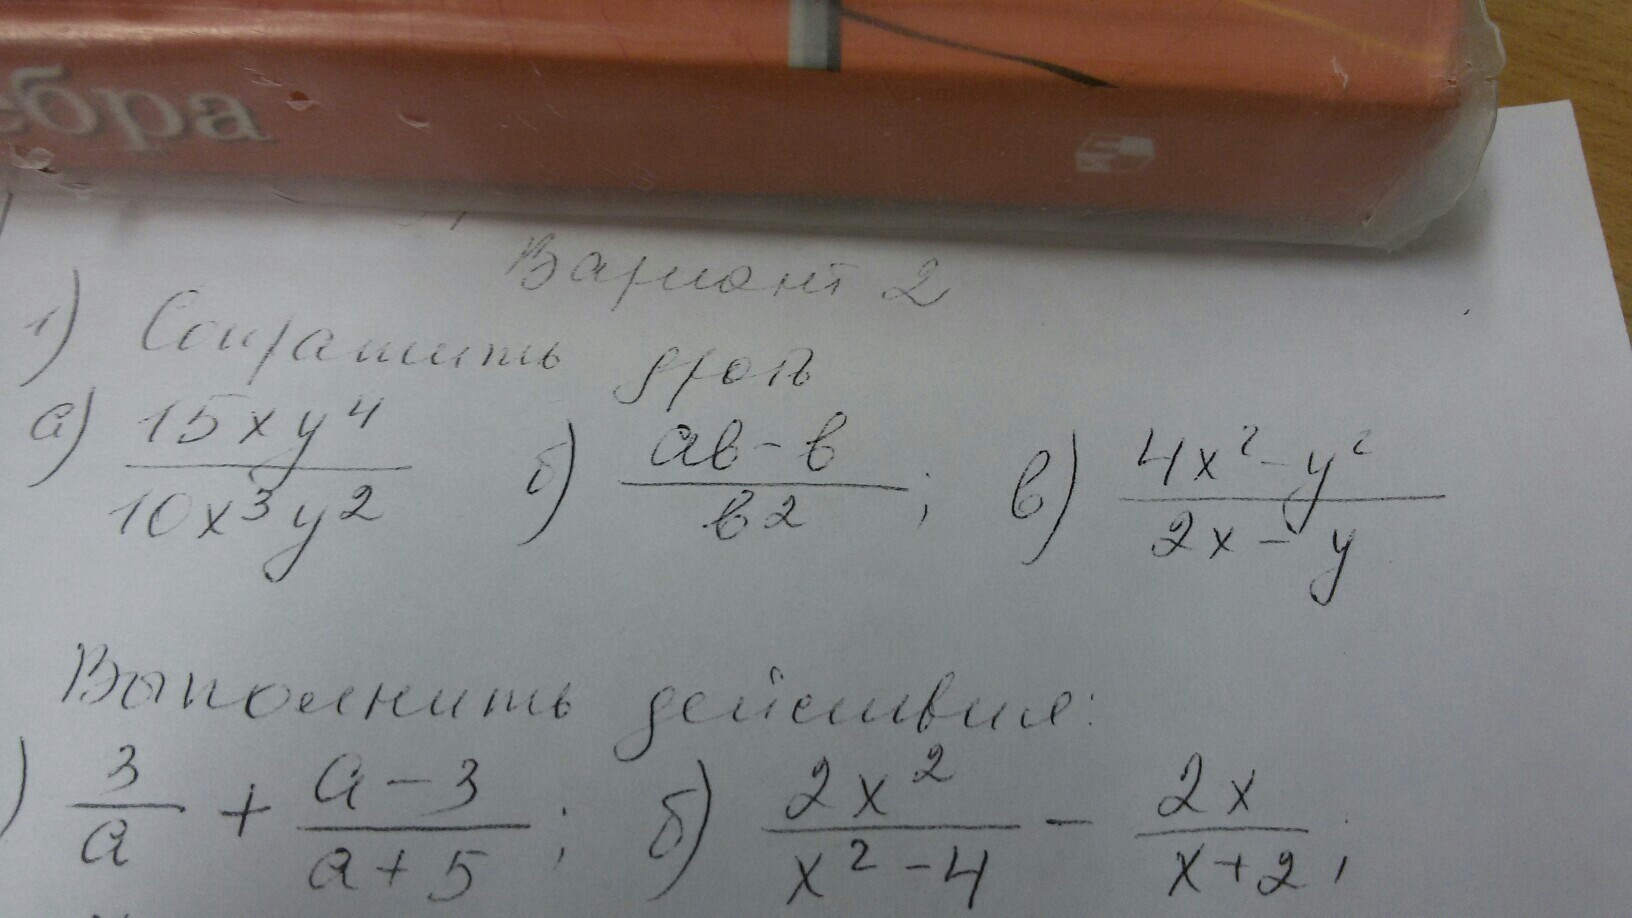 ебра
Вариант 2
1) Сократить дробь
а) 15xy⁴/10x³y² б) ав-в/в²; в) 4x²-y²/2x-y
Выполнить действия:
) 3/a + a-3/a+5; б) 2x²/x²-4 - 2x/x+2;